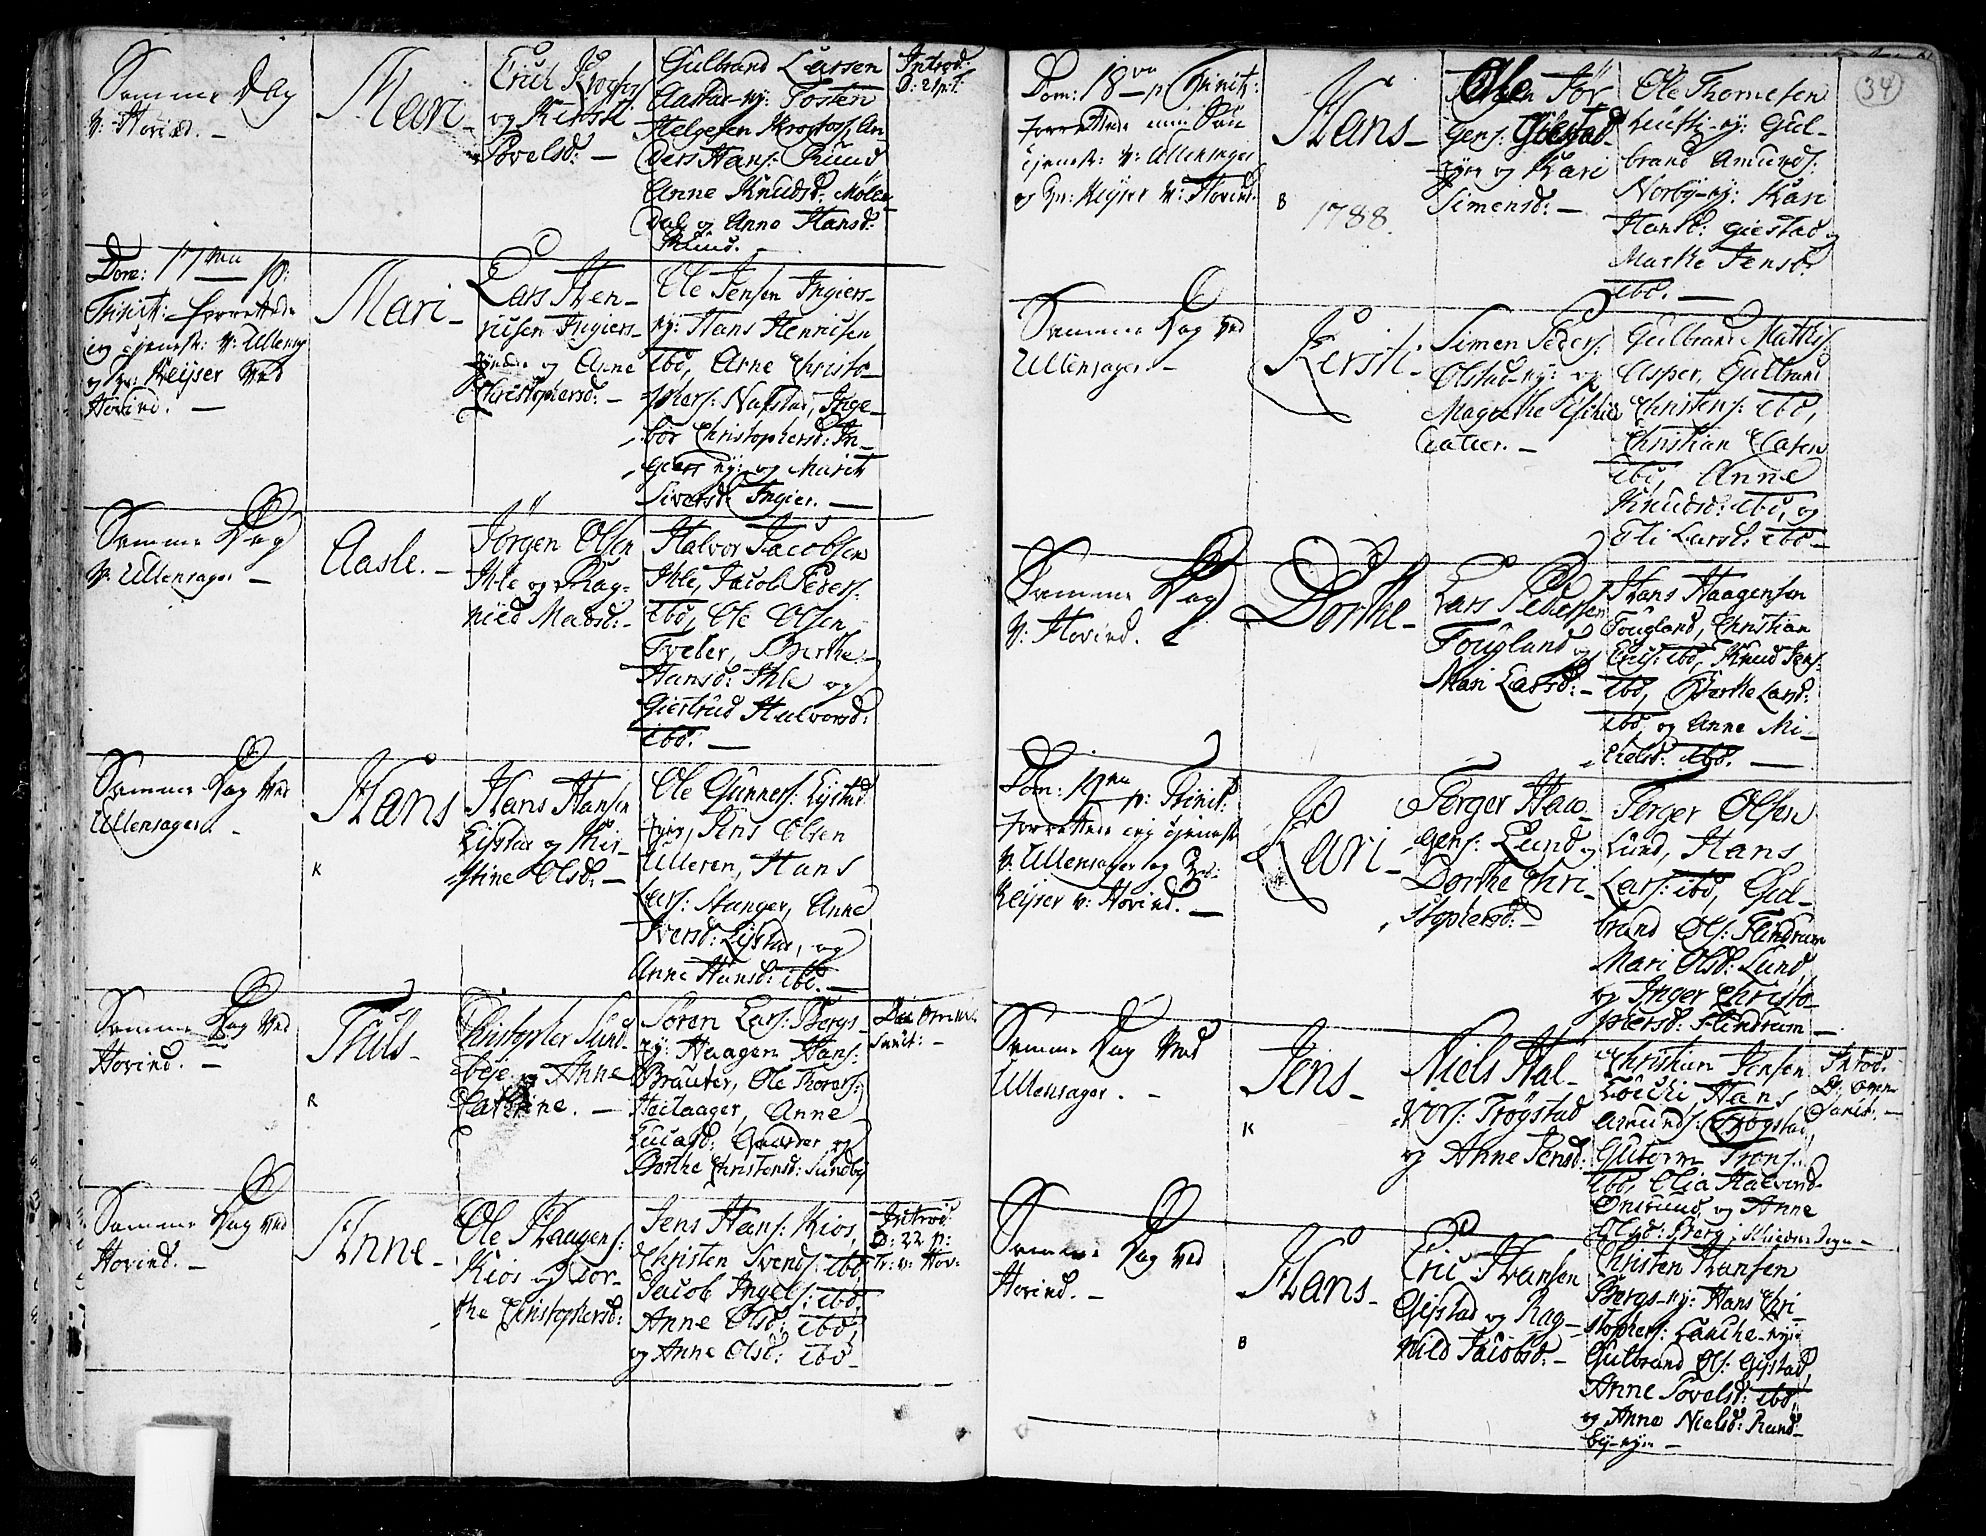 Samme Dag
v: Hovind. –
Mari –
Erich
og Kirsti
Povelsd: –
Gulbrand Larsen
Aastad-ny: Tosten
Helgesen Krogstos, An
ders Hans: Rund
Anne Knudsd: Mølle
dal og Anne Hansd:
Rund.
Introd:
D: 21 p: T.
Dom: 17 ma p:
Trinit: forrettede
ieg tjenest: v: Ullensag
og Hr: Keijser Ved
Hovind. –
Mari –
Lars Hen-
richsen Ingiers-
og Anne
Christophersd: –
Ole Jensen Ingiers-
ny: Hans Henrichsen
ibd, Arne Christo-
phers: Nafstad, Inge-
bor Christophersd: In-
giers ny: og Marit
Siversd: Ingier. –
Samme Dag
v: Ullensager –
Aasle. –
Jörgen Olsen
Ihle og Rag-
nild Madsd: –
Halvor Jacobsen
Ihle, Jacob Peders:
ibd, Ole Olsen
Tveter, Berthe
Hansd: Ihle og
Giertrud Halvorsd:
ibd: –
Samme Dag Ved
Ullensager. –
Hans
K
Hans Hansen
Lijstad og Kir-
stine Olsd: –
Ole Gunners: Lijstad
Jens Olsen
Ulleren, Hans
Lars: Hanger, Anne
Iversd: Lijstad, og
Anne Hansd: ibd. –
Samme Dag Ved
Hovind. –
Truls –
K
Christopher Sund-
beje og Anne
Cathrine. –
Sören Lars: Bergs-
ny: Haagen Hans:
Brauter, Ole Thorers:
Heilaager, Anne
og
Berthe Christensd: Sundby
Die omn.
Sanct: –
Samme Dag Ved
Hovind. –
Anne –
Ole Haagens:
Kios og Dor-
the Christophersd:
Jens Hans: Kios,
Christen Svends: ibd,
Jacob Ingels: ibd,
Anne Olsd: ibd,
og Anne Olsd: ibd –
Introd:
D: 22 p:
Tr: v: Hov:
34
Dom: 18 va p Trinit:
forrettede min Søn
tjenest: v: Ullensager
og Hr: Keijser v: Hovind.
Hans –
B
1788.
Ole Jör
gens: Gjestad-
og Kari
Simensd: –
Ole Thornesen
Gul-
brand Amunds:
Norby-ny: Kari
Hansd: Giestad og
Marthe Jensd:
ibd. –
Samme Dag Ved
Ullensager –
Kirsti –
Simen Peders:
Olstad-ny: og
Magrethe
Gulbrand Mathis:
Asper, Gulbrand
Christens: ibd,
Christian Clasen
ibd, Anne
Knudsd: ibd, og
Eli Larsd: ibd –
Samme Dag
v: Hovind.
Dorthe –
Lars Pedersen
Fougland og
Mari Larsd: –
Hans Haagensen
Fougland, Christian
Erics: ibd, Knud Jens:
ibd, Berthe Larsd:
ibd, og Anne Mi-
chelsd: ibd. –
Dom: 19 na p: Trinit:
forrettede ieg tjenest
v: Ullensager og Hr:
Keijser v: Hovind. –
Kari –
Torger Haa-
gens: Lund og
Dorthe Chri
stophersd: –
Torger Olsen
Lund, Hans
Lars: ibd, Gul-
brand Ols: Flindrum
Mari Olsd: Lund,
og Inger Christo-
phersd: Flindrum –
Samme Dag Ved
Ullensager. –
Jens –
K
Niels Hal-
vors: Trögstad
og Anne Jensd:
Christian Jensen
Hans
Amunds: Trögstad,
Gutorm Trons:
ibd, Elia Halvind
og Anne
Olsd: Berg
Introd:
D: omn:
Sanct: –
Samme Dag Ved
Hovind. –
Hans –
B
Eric Hansen
Gijstad og Rag-
nild Jacobsd: –
Christen Hansen
Bergs-ny: Hans Chri-
stophers:
Gulbrand Ols: Gijstad,
Anne Povelsd: ibd,
og Anne Nielsd: Rund-
by-nye –